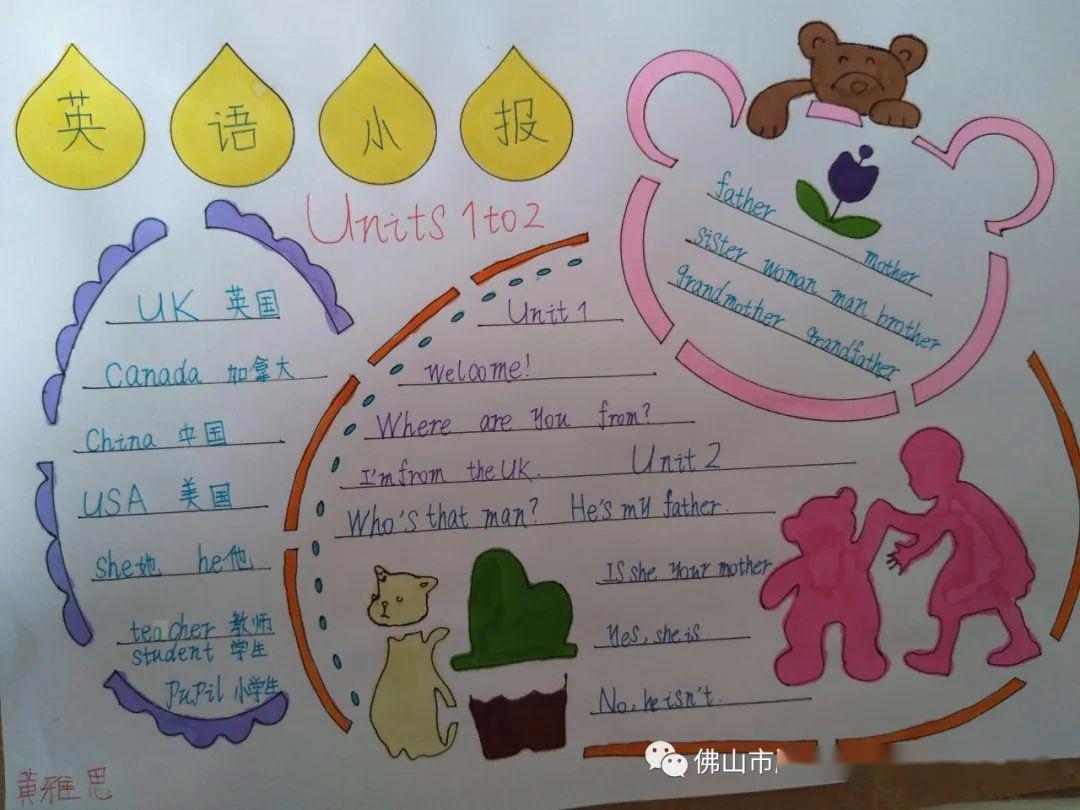 英语小报
Units 1 to 2
UK 英国
Canada 加拿大
China 中国
USA 美国
she她 he他
teacher 教师
student 学生
pupil 小学生
father
mother
sister woman man brother
grandmother grandfather
Unit 1
Welcome!
Where are you from?
I'm from the UK.
Unit 2
Who's that man? He's my father.
IS she your mother
Yes, she is
No, he isn't.
黄雅思
佛山市